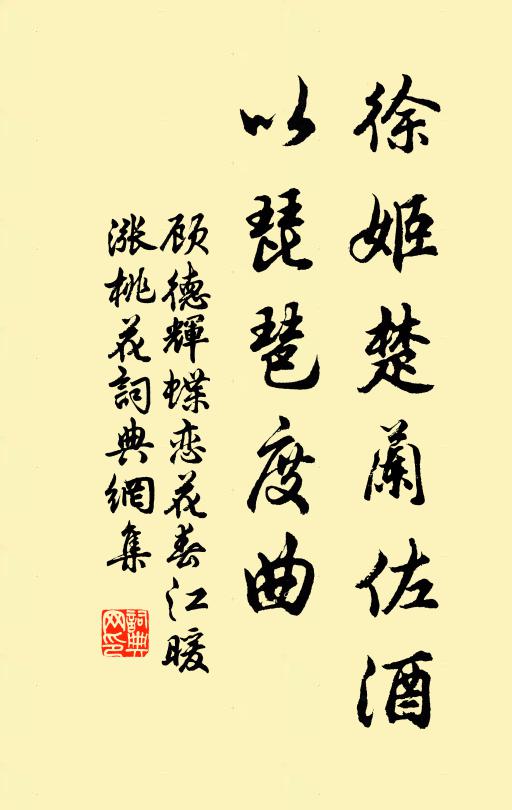 徐姬楚蘭佐酒
以琵琶度曲
顾德輝蝶恋花春江暖
漲桃花詞典網集
詞典
网印